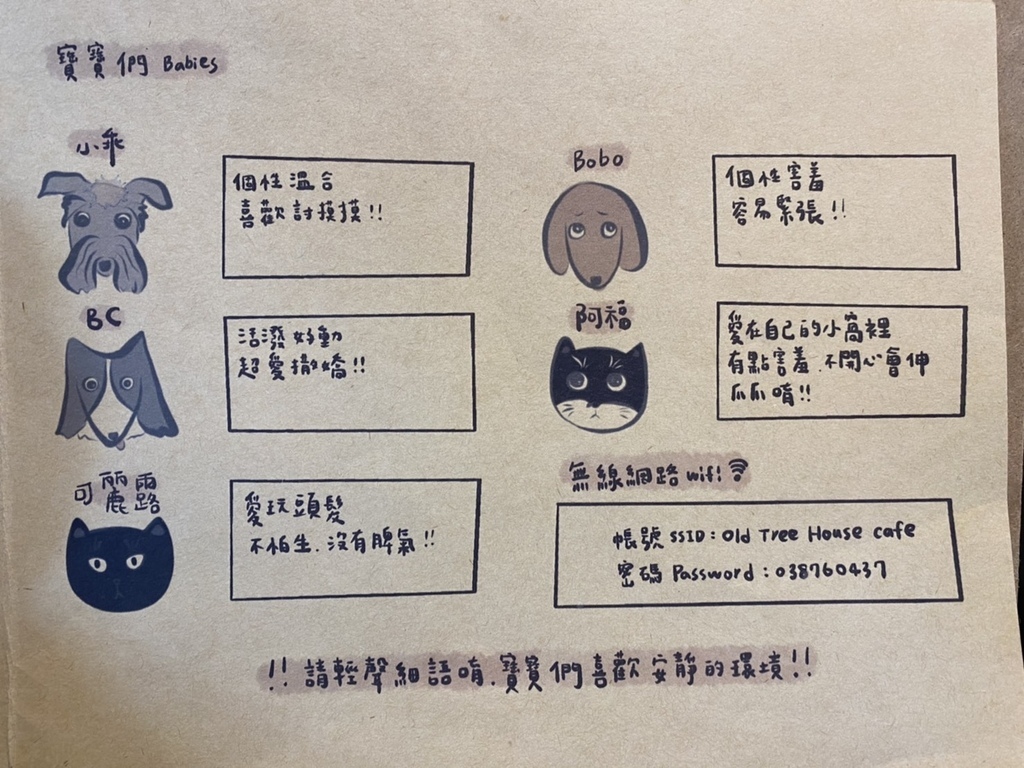 寶寶們 Babies
小乖
個性溫合
喜歡討摸摸!!
Bobo
個性害羞
容易緊張!!
BC
活潑好動
超愛撒嬌!!
阿福
愛在自己的小窩裡
有點害羞.不開心會伸
爪爪唷!!
可麗露
愛玩頭髮
不怕生.沒有脾氣!!
無線網路 wifi
帳號 SSID: Old Tree House cafe
密碼 Password: 038760437
!! 請輕聲細語唷.寶寶們喜歡安靜的環境!!